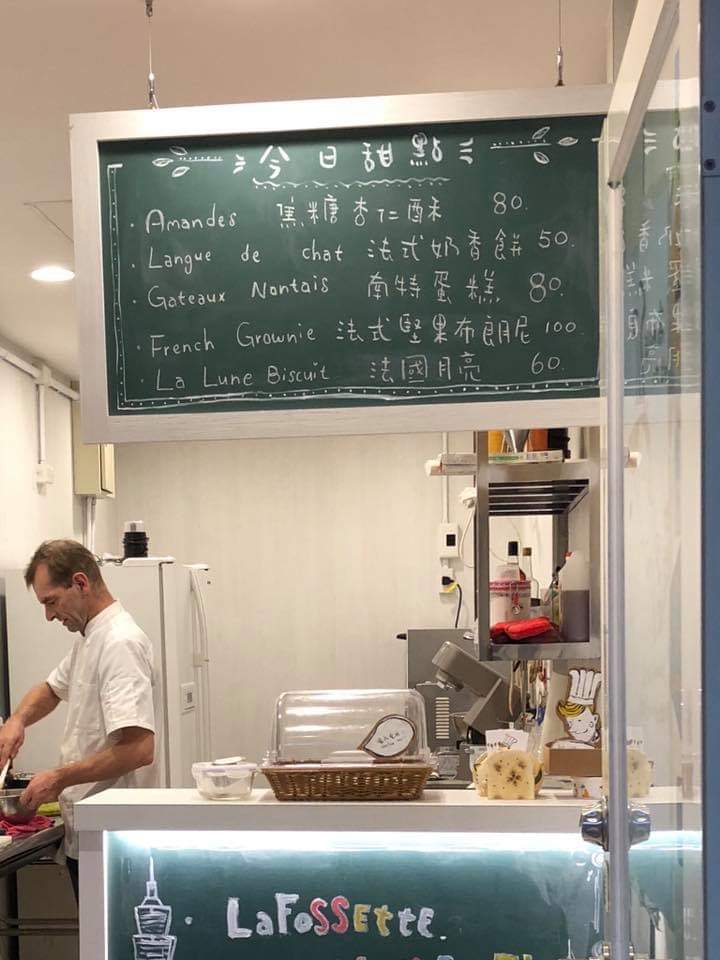 今日甜點
· Amandes 焦糖杏仁酥 80.
· Langue de chat 法式奶香餅 50.
· Gateaux Nantais 南特蛋糕 80.
· French Grownie 法式堅果布朗尼 100
· La Lune Biscuit 法國月亮 60.
LaFoSSEttE.